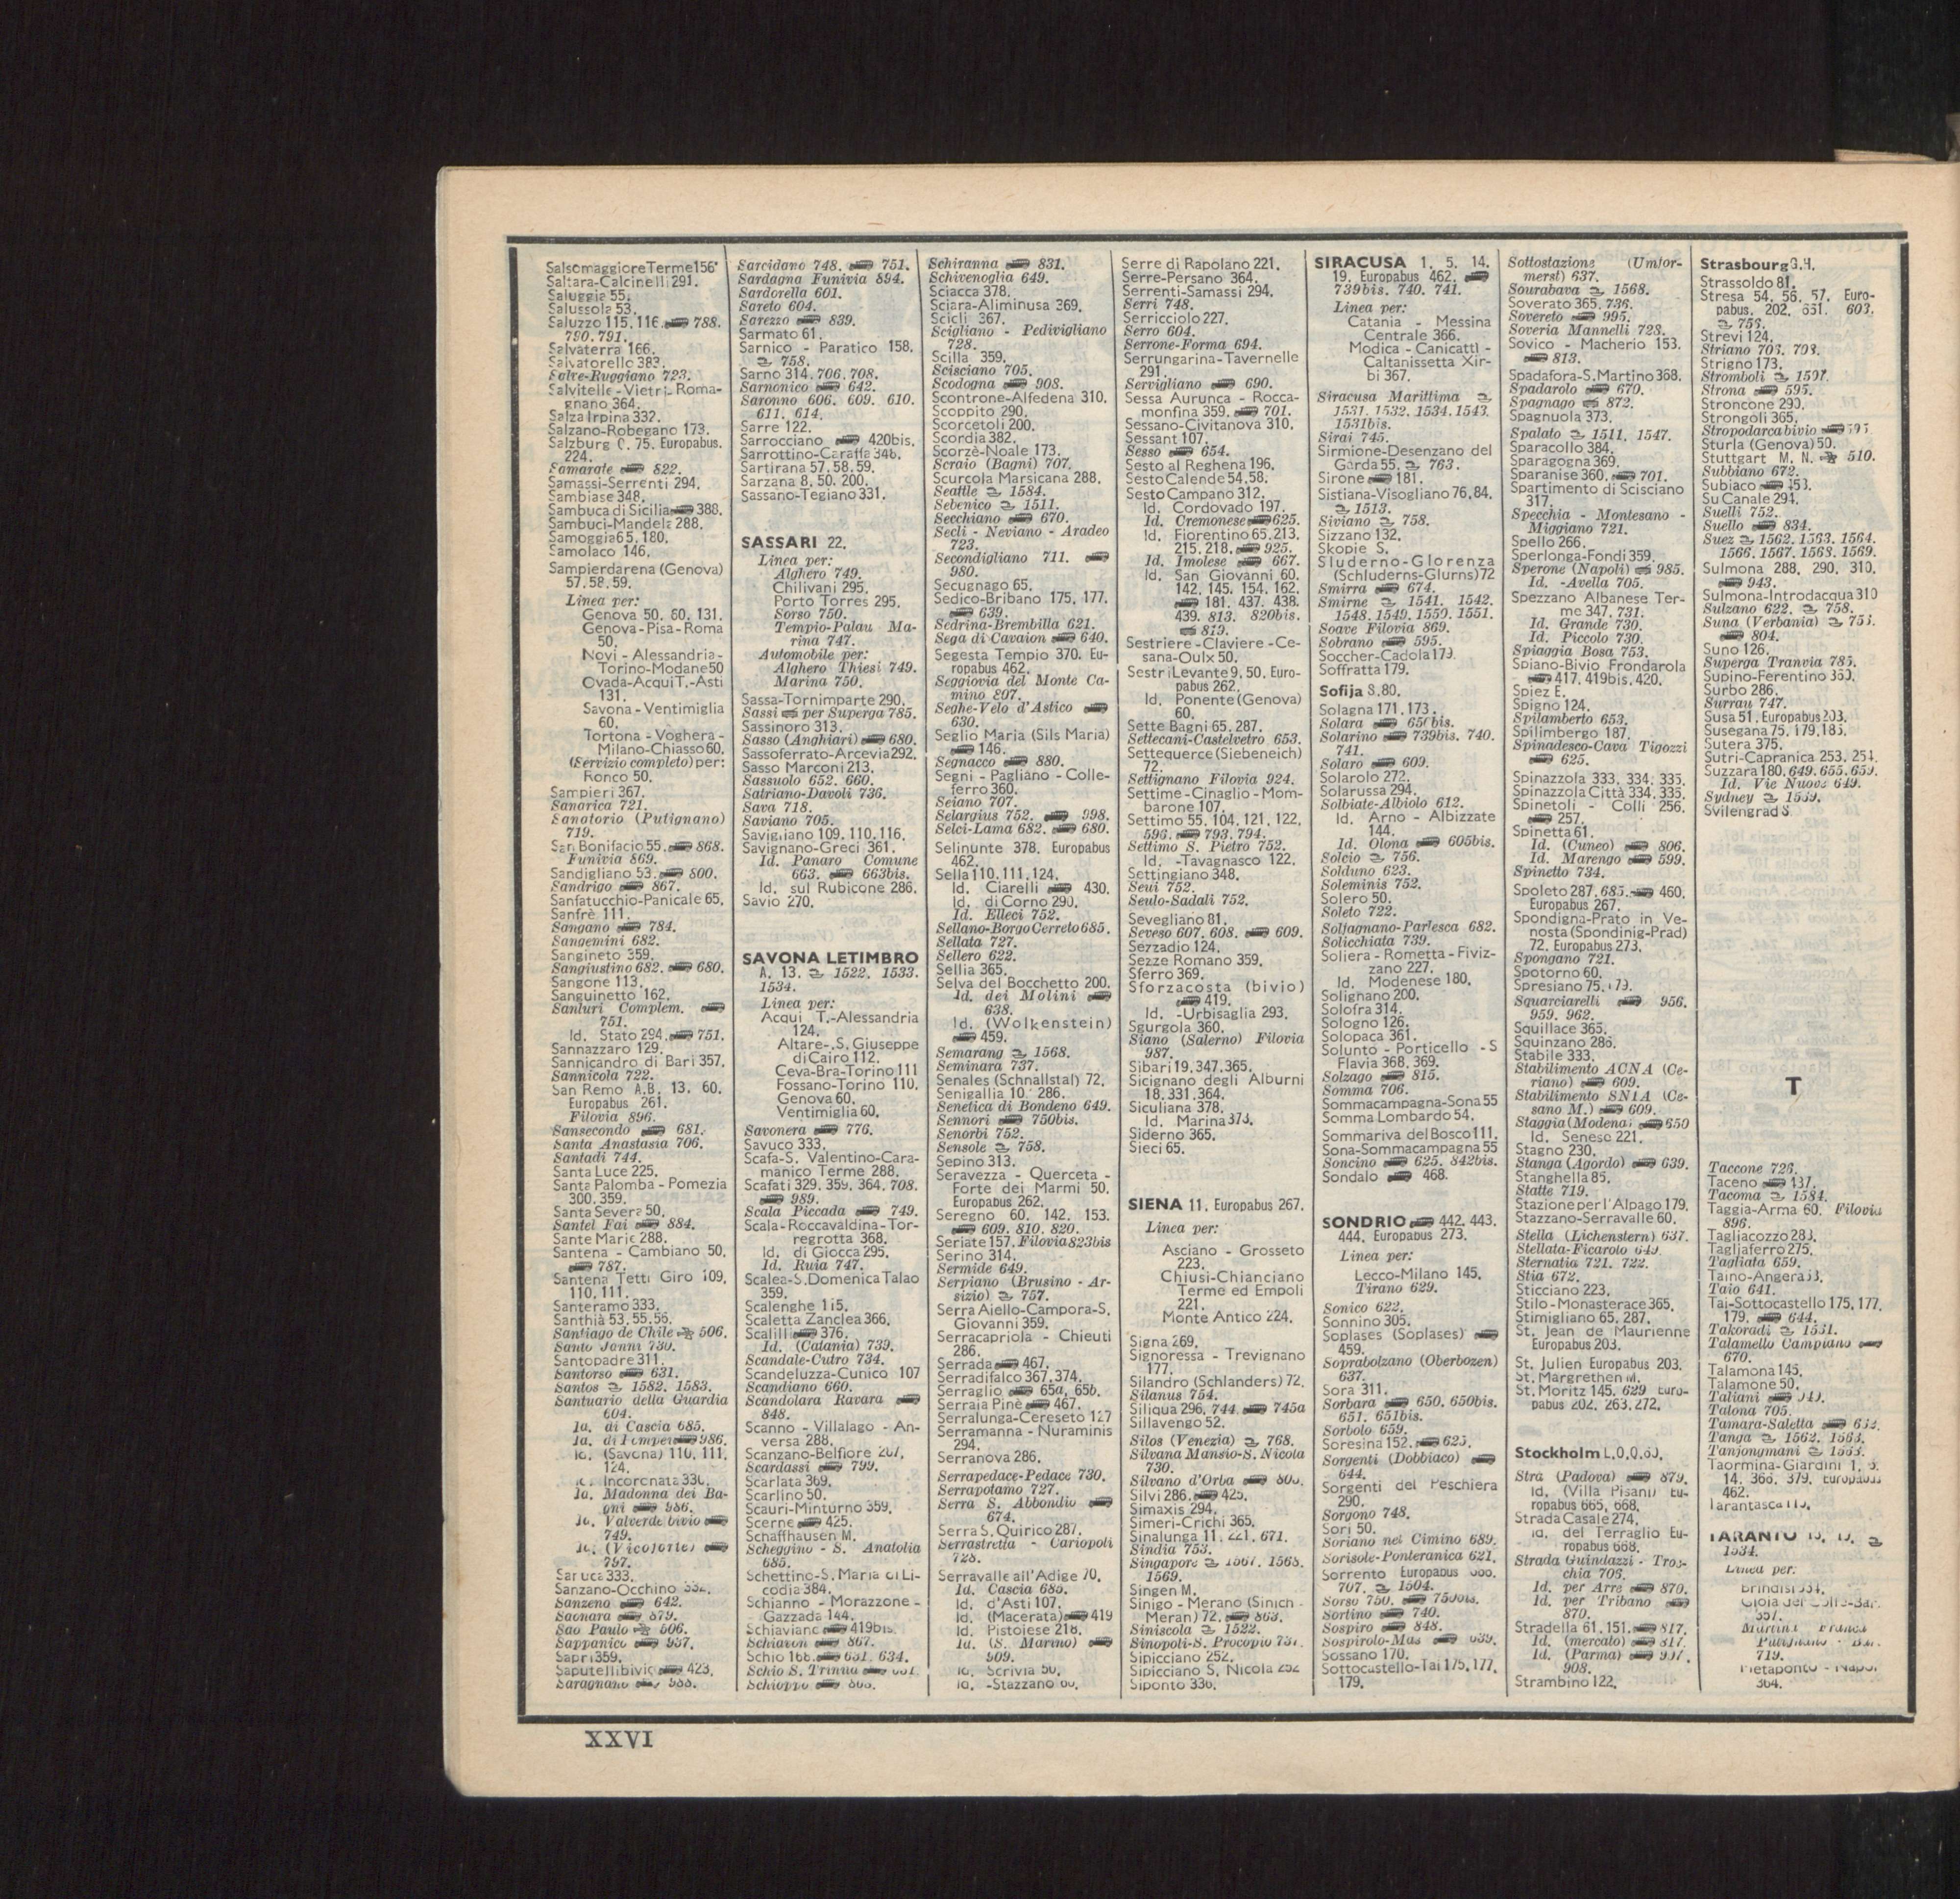 Salsomaggiore Terme 156
Saltara-Calcinelli 291.
Saluggia 55.
Salussola 53.
Saluzzo 115, 116. 788.
790. 791.
Salvaterra 166.
Salvatorello 383.
Salve-Ruggiano 723.
Salvitelle - Vietri - Roma-
gnano 364.
Salza Irpina 332.
Salzano-Robegano 173.
Salzburg C. 75. Europabus.
224.
Samarate 822.
Samassi-Serrenti 294.
Sambiase 348.
Sambuca di Sicilia 388.
Sambuci-Mandela 288.
Samoggia 65, 180.
Samolaco 146.
Sampierdarena (Genova)
57. 58. 59.
Linea per:
Genova 50. 60. 131.
Genova-Pisa-Roma
50.
Novi - Alessandria-
Torino-Modane 50
Ovada-Acqui T.-Asti
131.
Savona - Ventimiglia
60.
Tortona - Voghera -
Milano-Chiasso 60.
(Servizio completo) per:
Ronco 50.
Sampieri 367.
Sanarica 721.
Sanatorio (Putignano)
719.
San Bonifacio 55. 868.
Funivia 869.
Sandigliano 53. 800.
Sandrigo 867.
Sanfatucchio-Panicale 65.
Sanfrè 111.
Sangano 784.
Sangemini 682.
Sangineto 359.
Sangiustino 682. 680.
Sangone 113.
Sanguinetto 162.
Sanluri Complem.
751.
Id. Stato 294. 751.
Sannazzaro 129.
Sannicandro di Bari 357.
Sannicola 722.
San Remo A.B. 13. 60.
Europabus 261.
Filovia 896.
Sansecondo 681.
Santa Anastasia 706.
Santadi 744.
Santa Luce 225.
Santa Palomba - Pomezia
300. 359.
Santa Severa 50.
Santel Fai 884.
Sante Marie 288.
Santena - Cambiano 50.
787.
Santena Tetti Giro 109,
110, 111.
Santeramo 333.
Santhià 53. 55. 56.
Santiago de Chile 506.
Santo Janni 730.
Santopadre 311.
Santorso 631.
Santos 1582. 1583.
Santuario della Guardia
604.
Id. di Cascia 685.
Id. di Pompei 986.
Id. (Savona) 110, 111,
124.
Id. Incoronata 330.
Id. Madonna dei Ba-
gni 986.
Id. Valverde bivio
749.
Id. (Vicoforte)
797.
Saruca 333.
Sanzano-Occhino 332.
Sanzeno 642.
Saonara 879.
Sao Paulo 506.
Sappanico 937.
Sapri 359.
Saputelli bivio 423.
Saragnano 988.
Sarcidano 748. 751.
Sardagna Funivia 894.
Sardorella 601.
Sareto 604.
Sarezzo 839.
Sarmato 61.
Sarnico - Paratico 158.
758.
Sarno 314. 706. 708.
Sarnonico 642.
Saronno 606. 609. 610.
611. 614.
Sarre 122.
Sarrocciano 420bis.
Sarrottino-Caraffa 348.
Sartirana 57. 58. 59.
Sarzana 8. 50. 200.
Sassano-Tegiano 331.
SASSARI 22.
Linea per:
Alghero 749.
Chilivani 295.
Porto Torres 295.
Sorso 750.
Tempio-Palau Ma-
rina 747.
Automobile per:
Alghero Thiesi 749.
Marina 750.
Sassa-Tornimparte 290.
Sassi per Superga 785.
Sassinoro 313.
Sasso (Anghiari) 680.
Sassoferrato-Arcevia 292.
Sasso Marconi 213.
Sassuolo 652. 660.
Satriano-Davoli 736.
Sava 718.
Saviano 705.
Savigliano 109. 110. 116.
Savignano-Greci 361.
Id. Panaro Comune
663. 663bis.
Id. sul Rubicone 286.
Savio 270.
SAVONA LETIMBRO
A. 13. 1522. 1533.
1534.
Linea per:
Acqui T.-Alessandria
124.
Altare-S. Giuseppe
di Cairo 112.
Ceva-Bra-Torino 111
Fossano-Torino 110.
Genova 60.
Ventimiglia 60.
Savonera 776.
Savuco 333.
Scafa-S. Valentino-Cara-
manico Terme 288.
Scafati 329. 359. 364. 708.
989.
Scala Piccada 749.
Scala-Roccavaldina-Tor-
regrotta 368.
Id. di Giocca 295.
Id. Ruia 747.
Scalea-S. Domenica Talao
359.
Scalenghe 115.
Scaletta Zanclea 366.
Scalilli 376.
Id. (Catania) 739.
Scandale-Cutro 734.
Scandeluzza-Cunico 107
Scandiano 660.
Scandolara Ravara
848.
Scanno - Villalago - An-
versa 288.
Scanzano-Belfiore 267.
Scardassi 799.
Scarlata 369.
Scarlino 50.
Scauri-Minturno 359.
Scerne 425.
Schaffhausen M.
Scheggino - S. Anatolia
685.
Schettino-S. Maria di Li-
codia 384.
Schianno - Morazzone -
Gazzada 144.
Schiaviano 419bis.
Schiavon 867.
Schio 166. 631. 634.
Schio S. Trinità 631.
Schioppo 805.
Schiranna 831.
Schivenoglia 649.
Sciacca 378.
Sciara-Aliminusa 369.
Scicli 367.
Scigliano - Pedivigliano
728.
Scilla 359.
Scisciano 705.
Scodogna 908.
Scontrone-Alfedena 310.
Scoppito 290.
Scorcetoli 200.
Scordia 382.
Scorzè-Noale 173.
Scraio (Bagni) 707.
Scurcola Marsicana 288.
Seattle 1584.
Sebenico 1511.
Secchiano 670.
Seclì - Neviano - Aradeo
723.
Secondigliano 711.
980.
Secugnago 65.
Sedico-Bribano 175. 177.
639.
Sedrina-Brembilla 621.
Sega di Cavaion 640.
Segesta Tempio 370. Eu-
ropabus 462.
Seggiovia del Monte Ca-
mino 807.
Seghe-Velo d'Astico
630.
Seglio Maria (Sils Maria)
146.
Segnacco 880.
Segni - Pagliano - Colle-
ferro 360.
Seiano 707.
Selargius 752. 998.
Selci-Lama 682. 680.
Selinunte 378. Europabus
462.
Sella 110. 111. 124.
Id. Ciarelli 430.
Id. di Corno 290.
Id. Elleci 752.
Sellano-Borgo Cerreto 685.
Sellata 727.
Sellero 622.
Sellia 365.
Selva del Bocchetto 200.
Id. dei Molini
638.
Id. (Wolkenstein)
459.
Semarang 1568.
Seminara 737.
Senales (Schnalstal) 72.
Senigallia 10. 286.
Senetica di Bondeno 649.
Sennori 750bis.
Senorbi 752.
Sensole 758.
Sepino 313.
Seravezza - Querceta -
Forte dei Marmi 50.
Europabus 262.
Seregno 60. 142. 153.
609. 810. 820.
Seriate 157. Filovia 823bis
Serino 314.
Sermide 649.
Serpiano (Brusino - Ar-
sizio) 757.
Serra Aiello-Campora-S.
Giovanni 359.
Serracapriola - Chieuti
286.
Serrada 467.
Serradifalco 367. 374.
Serraglio 65a. 65b.
Serraia Pinè 467.
Serralunga-Cereseto 127
Serramanna - Nuraminis
294.
Serranova 286.
Serrapedace-Pedace 730.
Serrapotamo 727.
Serra S. Abbondio
674.
Serra S. Quirico 287.
Serrastretta - Cariopoli
728.
Serravalle all'Adige 70.
Id. Cascia 685.
Id. d'Asti 107.
Id. (Macerata) 419
Id. Pistoiese 218.
Id. (S. Marino)
909.
Id. Scrivia 50.
Id. -Stazzano 60.
Serre di Rapolano 221.
Serre-Persano 364.
Serrenti-Samassi 294.
Serri 748.
Serricciolo 227.
Serro 604.
Serrone-Forma 694.
Serrungarina-Tavernelle
291.
Servigliano 690.
Sessa Aurunca - Rocca-
monfina 359. 701.
Sessano-Civitanova 310.
Sessant 107.
Sesso 654.
Sesto al Reghena 196.
Sesto Calende 54. 58.
Sesto Campano 312.
Id. Cordovado 197.
Id. Cremonese 625.
Id. Fiorentino 65. 213.
215. 218. 925.
Id. Imolese 667.
Id. San Giovanni 60.
142. 145. 154. 162.
181. 437. 438.
439. 813. 820bis.
819.
Sestriere - Claviere - Ce-
sana-Oulx 50.
Sestri Levante 9. 50. Euro-
pabus 262.
Id. Ponente (Genova)
60.
Sette Bagni 65. 287.
Settecani-Castelvetro 653.
Settequerce (Siebeneich)
72.
Settignano Filovia 924.
Settime - Cinaglio - Mom-
barone 107.
Settimo 55. 104. 121. 122.
596. 793. 794.
Settimo S. Pietro 752.
Id. -Tavagnasco 122.
Settingiano 348.
Seui 752.
Seulo-Sadali 752.
Sevegliano 81.
Seveso 607. 608. 609.
Sezzadio 124.
Sezze Romano 359.
Sferro 369.
Sforzacosta (bivio)
419.
Id. -Urbisaglia 293.
Sgurgola 360.
Siano (Salerno) Filovia
987.
Sibari 19. 347. 365.
Sicignano degli Alburni
18. 331. 364.
Siculiana 378.
Id. Marina 373.
Siderno 365.
Sieci 65.
SIENA 11. Europabus 267.
Linea per:
Asciano - Grosseto
223.
Chiusi-Chianciano
Terme ed Empoli
221.
Monte Antico 224.
Signa 269.
Signoressa - Trevignano
177.
Silandro (Schlanders) 72.
Silanus 754.
Siliqua 296. 744. 745a
Sillavengo 52.
Silos (Venezia) 768.
Silvana Mansio-S. Nicola
730.
Silvano d'Orba 800.
Silvi 286. 425.
Simaxis 294.
Simeri-Crichi 365.
Sinalunga 11. 221. 671.
Sindia 753.
Singapore 1567. 1568.
1569.
Singen M.
Sinigo - Merano (Sinich -
Meran) 72. 863.
Siniscola 1522.
Sinopoli-S. Procopio 737.
Sipicciano 252.
Sipicciano S. Nicola 252
Siponto 336.
SIRACUSA 1. 5. 14.
19. Europabus 462.
739bis. 740. 741.
Linea per:
Catania - Messina
Centrale 366.
Modica - Canicattì -
Caltanissetta Xir-
bi 367.
Siracusa Marittima
1531. 1532. 1534. 1543.
1531bis.
Sirai 745.
Sirmione-Desenzano del
Garda 55. 763.
Sirone 181.
Sistiana-Visogliano 76. 84.
1513.
Siviano 758.
Sizzano 132.
Skopie S.
Sluderno-Glorenza
(Schluderns-Glurns) 72
Smirra 674.
Smirne 1541. 1542.
1548. 1549. 1550. 1551.
Soave Filovia 869.
Sobrano 595.
Soccher-Cadola 179.
Soffratta 179.
Sofija S. 80.
Solagna 171. 173.
Solara 650bis.
Solarino 739bis. 740.
741.
Solaro 609.
Solarolo 272.
Solarussa 294.
Solbiate-Albiolo 612.
Id. Arno - Albizzate
144.
Id. Olona 605bis.
Solcio 756.
Solduno 623.
Soleminis 752.
Solero 50.
Soleto 722.
Solfagnano-Parlesca 682.
Solicchiata 739.
Soliera - Rometta - Fiviz-
zano 227.
Id. Modenese 180.
Solignano 200.
Solofra 314.
Sologno 126.
Solopaca 361.
Solunto - Porticello - S
Flavia 368. 369.
Solzago 815.
Somma 706.
Sommacampagna-Sona 55
Somma Lombardo 54.
Sommariva del Bosco 111.
Sona-Sommacampagna 55
Soncino 625. 842bis.
Sondalo 468.
SONDRIO 442. 443.
444. Europabus 273.
Linea per:
Lecco-Milano 145.
Tirano 629.
Sonico 622.
Sonnino 305.
Soplases (Soplases)
459.
Soprabolzano (Oberbozen)
637.
Sora 311.
Sorbara 650. 650bis.
651. 651bis.
Sorbolo 659.
Soresina 152. 625.
Sorgenti (Dobbiaco)
644.
Sorgenti del Peschiera
290.
Sorgono 748.
Sori 50.
Soriano nel Cimino 689.
Sorisole-Ponteranica 621.
Sorrento Europabus
707. 1504.
Sorso 750. 750bis.
Sortino 740.
Sospiro 848.
Sospirolo-Mas 639.
Sossano 170.
Sottocastello-Tai 175. 177.
179.
Sottostazione (Umfor-
merst) 637.
Sourabava 1568.
Soverato 365. 736.
Sovereto 995.
Soveria Mannelli 728.
Sovico - Macherio 153.
813.
Spadafora-S. Martino 368.
Spadarolo 670.
Spagnago 872.
Spagnuola 373.
Spalato 1511. 1547.
Sparacollo 384.
Sparagogna 369.
Sparanise 360. 701.
Spartimento di Scisciano
317.
Specchia - Montesano -
Miggiano 721.
Spello 266.
Sperlonga-Fondi 359.
Sperone (Napoli) 985.
Id. -Avella 705.
Spezzano Albanese Ter-
me 347. 731.
Id. Grande 730.
Id. Piccolo 730.
Spiaggia Bosa 753.
Spiano-Bivio Frondarola
417. 419bis. 420.
Spiez E.
Spigno 124.
Spilamberto 653.
Spilimbergo 187.
Spinadesco-Cava Tigozzi
625.
Spinazzola 333. 334. 335.
Spinazzola Città 334. 335.
Spinetoli - Colli 256.
257.
Spinetta 61.
Id. (Cuneo) 806.
Id. Marengo 599.
Spinetto 734.
Spoleto 287. 685. 460.
Europabus 267.
Spondigna-Prato in Ve-
nosta (Spondinig-Prad)
72. Europabus 273.
Spongano 721.
Spotorno 60.
Spresiano 75. 179.
Squarciarelli 956.
959. 962.
Squillace 365.
Squinzano 286.
Stabile 333.
Stabilimento ACNA (Ce-
riano) 609.
Stabilimento SNIA (Ce-
sano M.) 609.
Staggia (Modena) 650
Id. Senese 221.
Stagno 230.
Stanga (Agordo) 639.
Stanghella 85.
Statte 719.
Stazione per l'Alpago 179.
Stazzano-Serravalle 60.
Stella (Lichenstern) 637.
Stellata-Ficarolo 649.
Sternatia 721. 722.
Stia 672.
Sticciano 223.
Stilo-Monasterace 365.
Stimigliano 65. 287.
St. Jean de Maurienne
Europabus 203.
St. Julien Europabus 203.
St. Margrethen M.
St. Moritz 145. 629 Euro-
pabus 202. 263. 272.
Stockholm L. O. Q. 60.
Strà (Padova) 879.
Id. (Villa Pisani) Eu-
ropabus 665. 668.
Strada Casale 274.
Id. del Terraglio Eu-
ropabus 668.
Strada Guindazzi - Troc-
chia 706.
Id. per Arre 870.
Id. per Tribano
870.
Stradella 61. 151. 817.
Id. (mercato) 817.
Id. (Parma) 907.
908.
Strambino 122.
Strasbourg G. H.
Strassoldo 81.
Stresa 54. 56. 57. Euro-
pabus. 202. 631. 603.
756.
Strevi 124.
Striano 705. 708.
Strigno 173.
Stromboli 1507.
Strona 595.
Stroncone 290.
Strongoli 365.
Stropodarca bivio 595.
Sturla (Genova) 50.
Stuttgart M. N. 510.
Subbiano 672.
Subiaco 453.
Su Canale 294.
Suelli 752.
Suello 834.
Suez 1562. 1563. 1564.
1566. 1567. 1568. 1569.
Sulmona 288. 290. 310.
943.
Sulmona-Introdacqua 310
Sulzano 622. 758.
Suna (Verbania) 755.
804.
Suno 126.
Superga Tranvia 785.
Supino-Ferentino 360.
Surbo 286.
Surrau 747.
Susa 51. Europabus 203.
Susegana 75. 179. 183.
Sutera 375.
Sutri-Capranica 253. 254.
Suzzara 180. 649. 655. 659.
Id. Vie Nuove 649.
Sydney 1569.
Svilengrad S.
T
Taccone 726.
Taceno 437.
Tacoma 1584.
Taggia-Arma 60. Filovia
896.
Tagliacozzo 288.
Tagliaferro 275.
Tagliata 659.
Taino-Angera 53.
Taio 641.
Tai-Sottocastello 175. 177.
179. 644.
Takoradi 1551.
Talamello Campiano
670.
Talamona 145.
Talamone 50.
Taliani
Talona 705.
Tamara-Saletta
Tanga 1562. 1563.
Tanjongmani 1563.
Taormina-Giardini 1. 5.
14. 366. 379. Europabus
462.
Tarantasca 115.
TARANTO
1534.
Linea per:
Brindisi 334.
Gioia del Colle-Bari
357.
Martina Franca
Putignano - Bari
719.
Metaponto - Napoli
364.
XXVI